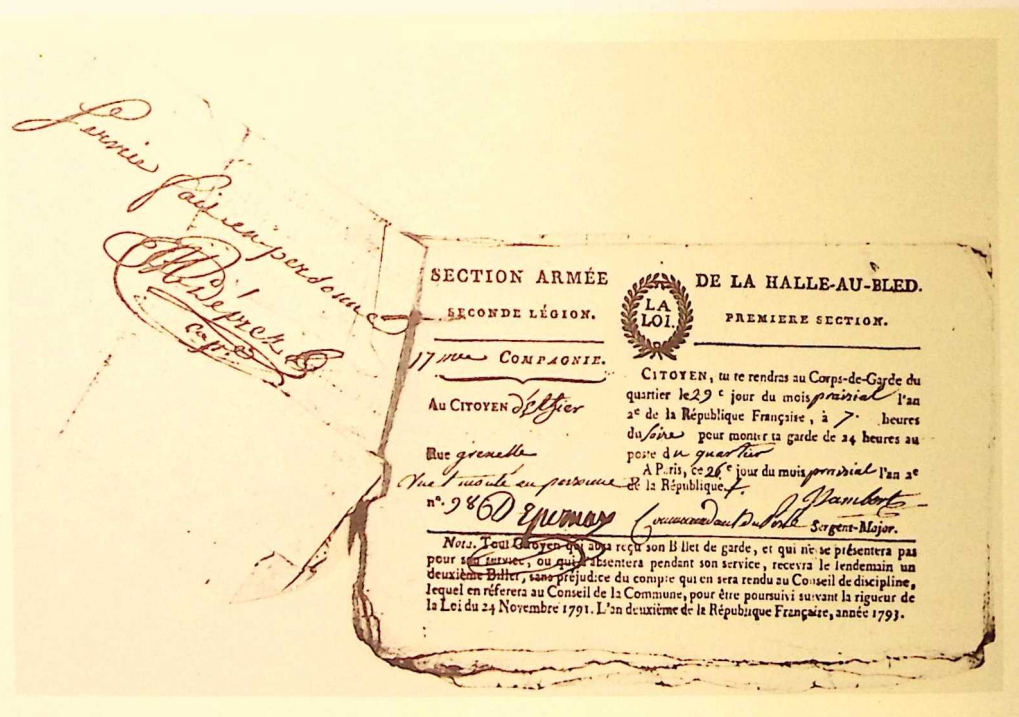 Service
fait en personne
Déprez
cap.
SECTION ARMÉE DE LA HALLE-AU-BLED.
LA
LOI.
SECONDE LÉGION. PREMIERE SECTION.
17 me COMPAGNIE.
AU CITOYEN
Rue grenelle
nº. 986
CITOYEN, tu te rendras au Corps-de-Garde du
quartier le 29 e jour du mois prairial l'an
2e de la République Françaíse, à 7. heures
du soire pour monter ta garde de 24 heures au
poste du quartier
A Paris, ce 26 e jour du mois prairial l'an 2e
de la République.
Commandant du Poste Sergent-Major.
Nota. Tout Citoyen qui aura reçu son Billet de garde, et qui ne se présentera pas
pour son service, ou qui s'absentera pendant son service, recevra le lendemain un
deuxième Billet, sans préjudice du compte qui en sera rendu au Conseil de discipline,
lequel en réferera au Conseil de la Commune, pour être poursuivi suivant la rigueur de
la Loi du 24 Novembre 1791. L'an deuxième de la République Française, année 1793.